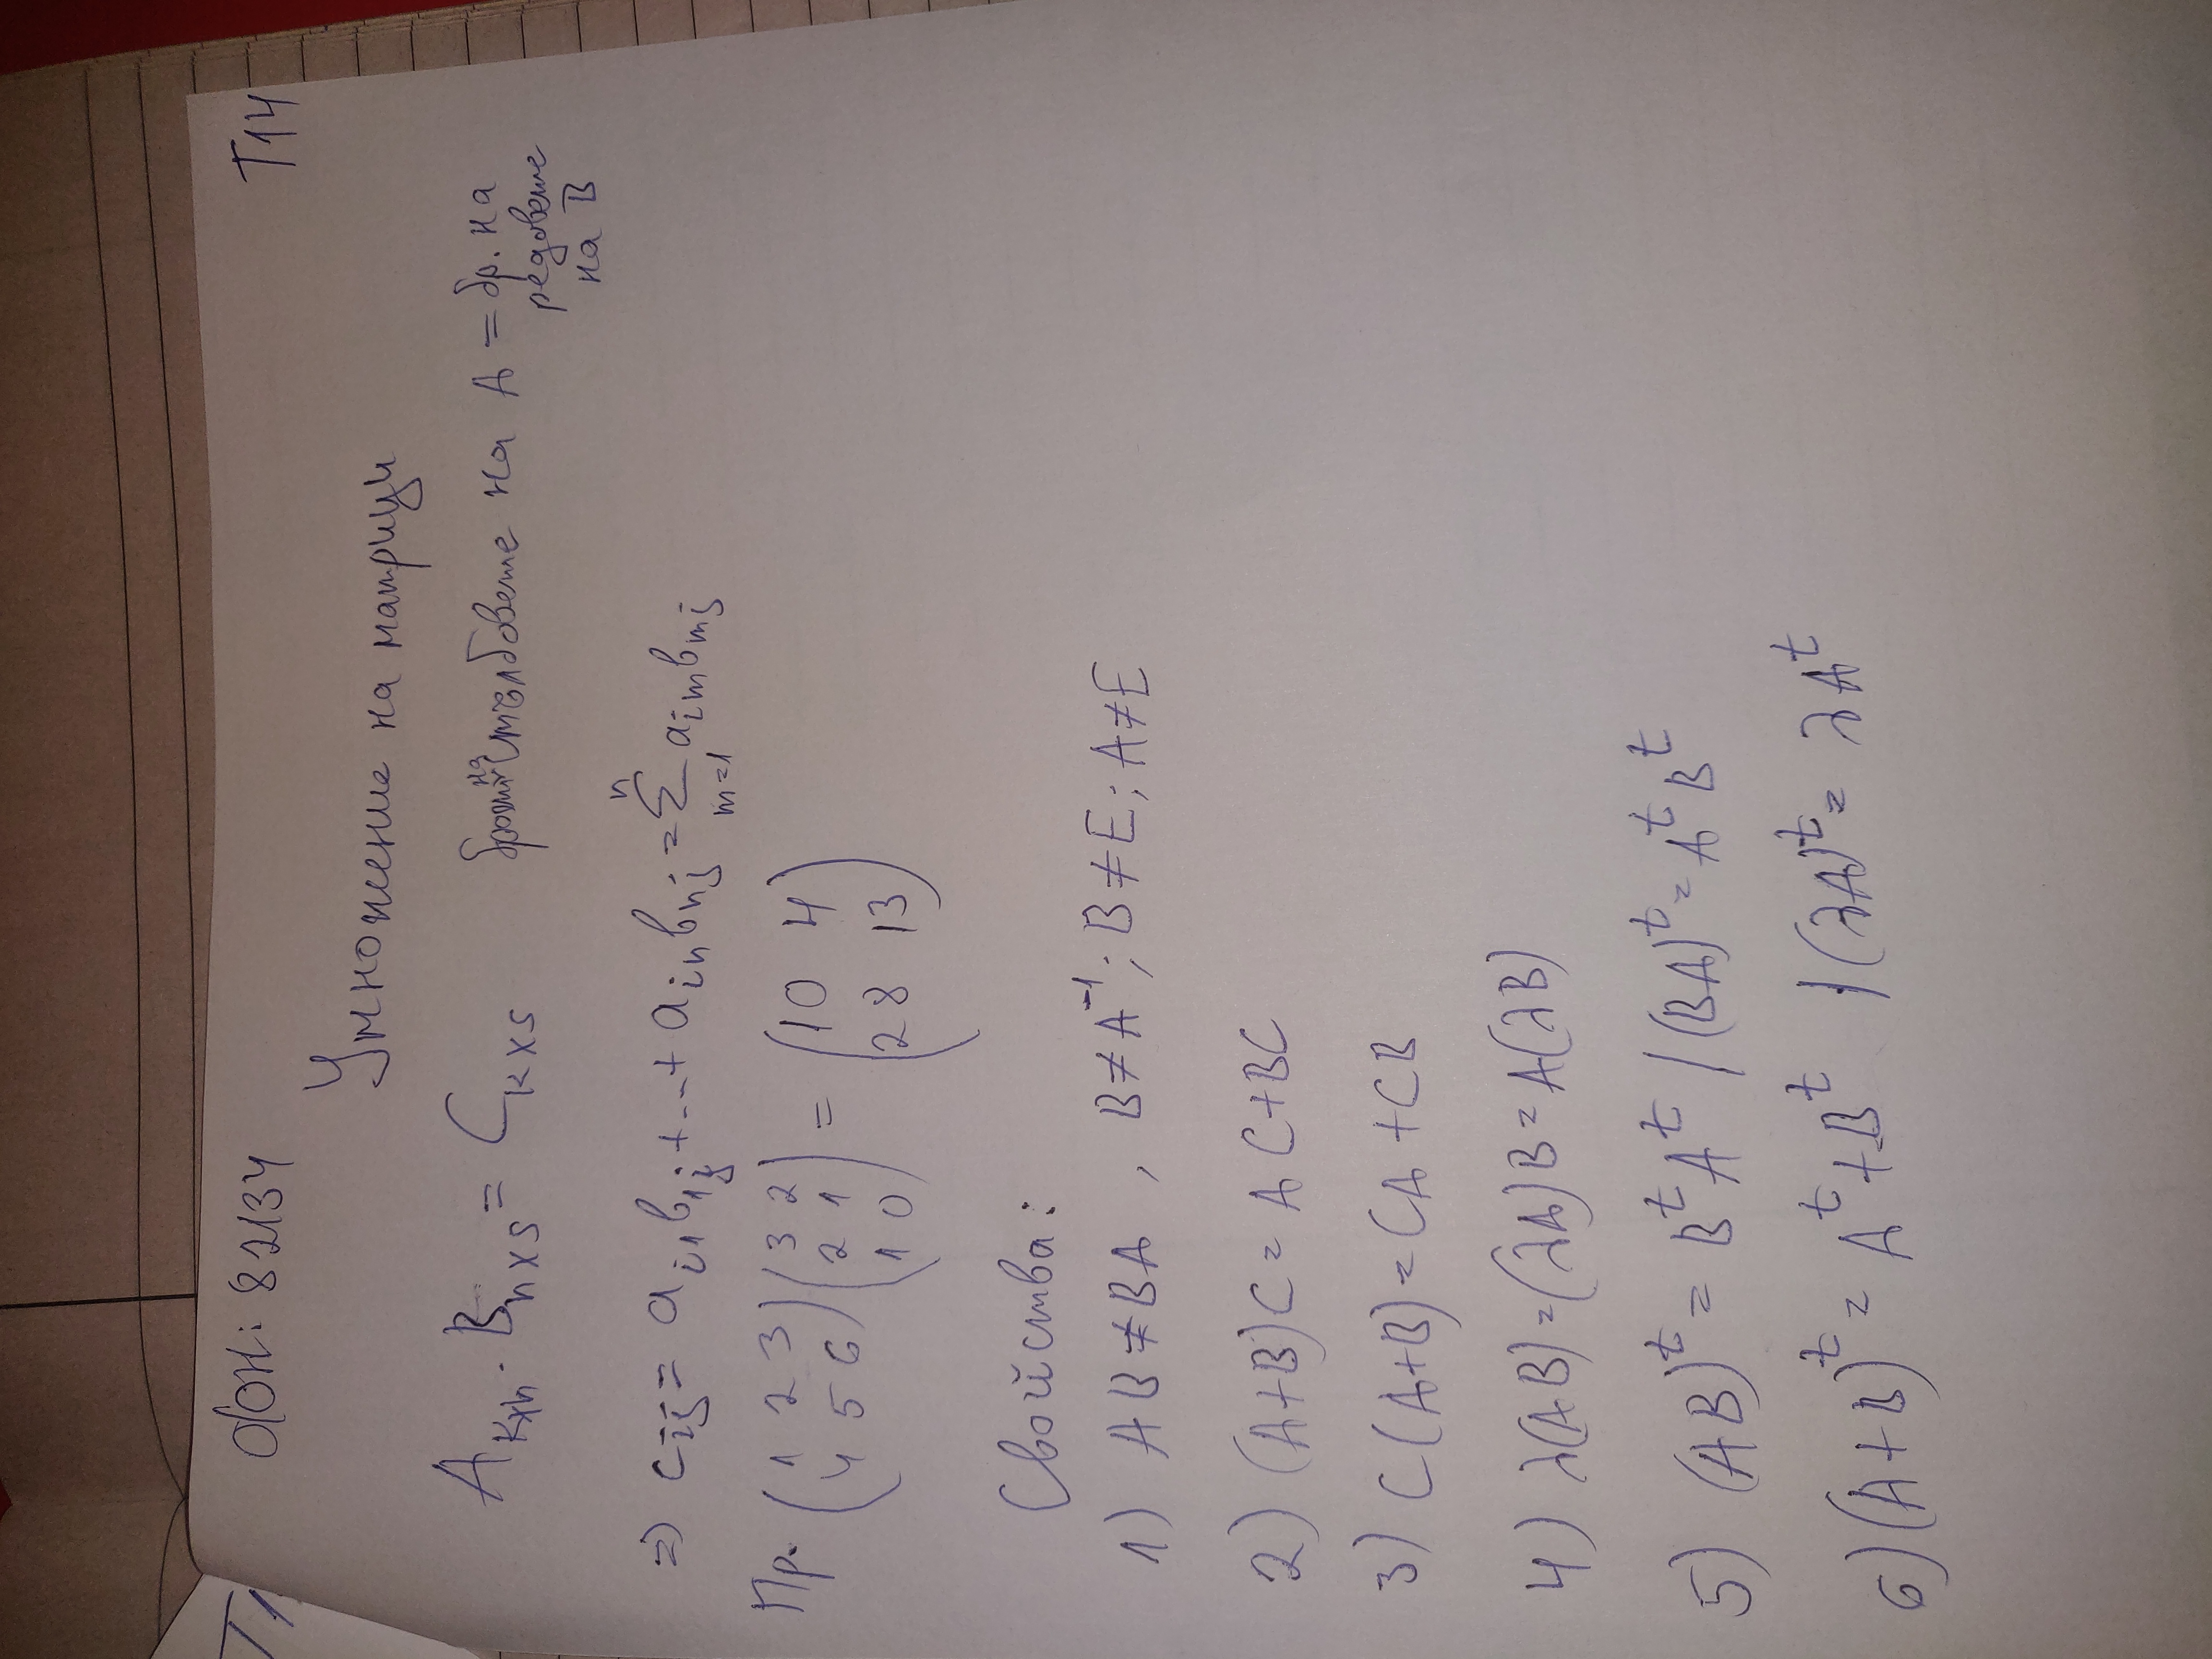 ФН: 82134
T14
Умножение на матрици
A_{k×n} · B_{n×s} = C_{k×s} броят на стълбовете на A = бр. на
редовете
на B
=> c_{ij} = a_{i1}b_{1j} + ... + a_{in}b_{nj} = \sum_{m=1}^{n} a_{im}b_{mj}
Пр. (1 2 3) (3 2) = (10 4)
(4 5 6) (2 1) (28 13)
(1 0)
Свойства:
1) AB ≠ BA , B ≠ A^{-1}; B ≠ E; A ≠ E
2) (A+B)C = AC+BC
3) C(A+B) = CA+CB
4) λ(AB) = (λA)B = A(λB)
5) (AB)^t = B^t A^t / (BA)^t = A^t B^t
6) (A+B)^t = A^t + B^t / (λA)^t = λA^t